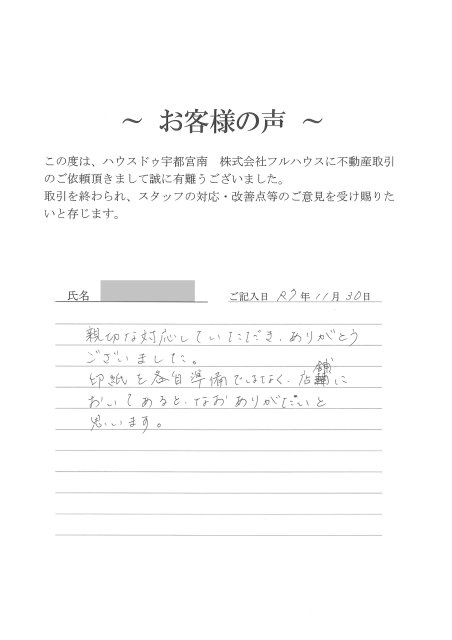 ～ お客様の声 ～
この度は、ハウスドゥ宇都宮南　株式会社フルハウスに不動産取引
のご依頼頂きまして誠に有難うございました。
取引を終わられ、スタッフの対応・改善点等のご意見を受け賜りた
いと存じます。
氏名　ご記入日 R7年11月30日
親切な対応していただき、ありがとう
ございました。
印紙を各自準備ではなく、店舗に
おいてあると、なおありがたいと
思います。